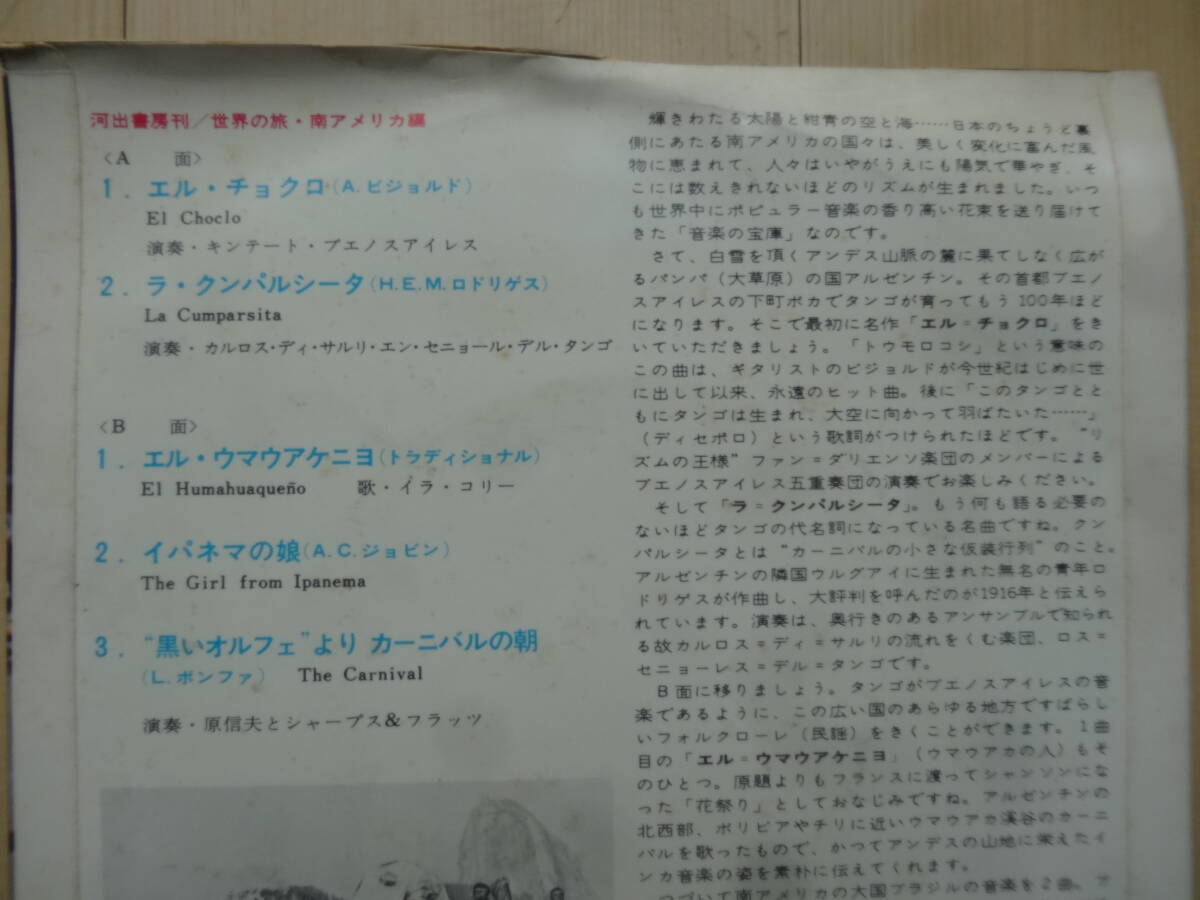 河出書房刊／世界の旅・南アメリカ編
〈A　面〉
1．エル・チョクロ（A.ビジョルド）
El Choclo
演奏・キンテート・ブエノスアイレス
2．ラ・クンパルシータ（H.E.M.ロドリゲス）
La Cumparsita
演奏・カルロス・ディ・サルリ・エン・セニョール・デル・タンゴ
〈B　面〉
1．エル・ウマウアケニヨ（トラディショナル）
El Humahuaqueño　歌・イラ・コリー
2．イパネマの娘（A.C.ジョビン）
The Girl from Ipanema
3．“黒いオルフェ”より カーニバルの朝
（L.ボンファ）　The Carnival
演奏・原信夫とシャープス&フラッツ
輝きわたる太陽と紺青の空と海……日本のちょうど裏
側にあたる南アメリカの国々は、美しく変化に富んだ風
物に恵まれて、人々はいやがうえにも陽気で華やぎ、そ
こには数えきれないほどのリズムが生まれました。いつ
も世界中にポピュラー音楽の香り高い花束を送り届けて
きた「音楽の宝庫」なのです。
さて、白雪を頂くアンデス山脈の麓に果てしなく広が
るパンパ（大草原）の国アルゼンチン。その首都ブエノ
スアイレスの下町ボカでタンゴが育ってもう100年ほど
になります。そこで最初に名作「エル＝チョクロ」をき
いていただきましょう。「トウモロコシ」という意味の
この曲は、ギタリストのビジョルドが今世紀はじめに世
に出して以来、永遠のヒット曲。後に「このタンゴとと
もにタンゴは生まれ、大空に向かって羽ばたいた……」
（ディセポロ）という歌詞がつけられたほどです。“リ
ズムの王様”ファン＝ダリエンソ楽団のメンバーによる
ブエノスアイレス五重奏団の演奏でお楽しみください。
そして「ラ＝クンパルシータ」。もう何も語る必要の
ないほどタンゴの代名詞になっている名曲ですね。クン
パルシータとは“カーニバルの小さな仮装行列”のこと。
アルゼンチンの隣国ウルグアイに生まれた無名の青年ロ
ドリゲスが作曲し、大評判を呼んだのが1916年と伝えら
れています。演奏は、奥行きのあるアンサンブルで知られ
る故カルロス＝ディ＝サルリの流れをくむ楽団、ロス＝
セニョーレス＝デル＝タンゴです。
B面に移りましょう。タンゴがブエノスアイレスの音
楽であるように、この広い国のあらゆる地方ですばらし
いフォルクローレ（民謡）をきくことができます。1曲
目の「エル＝ウマウアケニヨ」（ウマウアカの人）もそ
のひとつ。原題よりもフランスに渡ってシャンソンにな
った「花祭り」としておなじみですね。アルゼンチンの
北西部、ボリビアやチリに近いウマウアカ渓谷のカーニ
バルを歌ったもので、かつてアンデスの山地に栄えたイ
ンカ音楽の姿を素朴に伝えてくれます。
つづいて南アメリカの大国ブラジルの音楽を2曲。